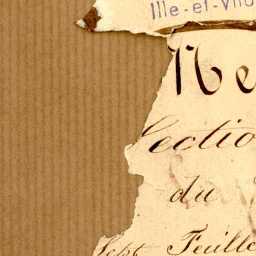 Ille-et-Vil
Ne
Section
du
Sept Feuille